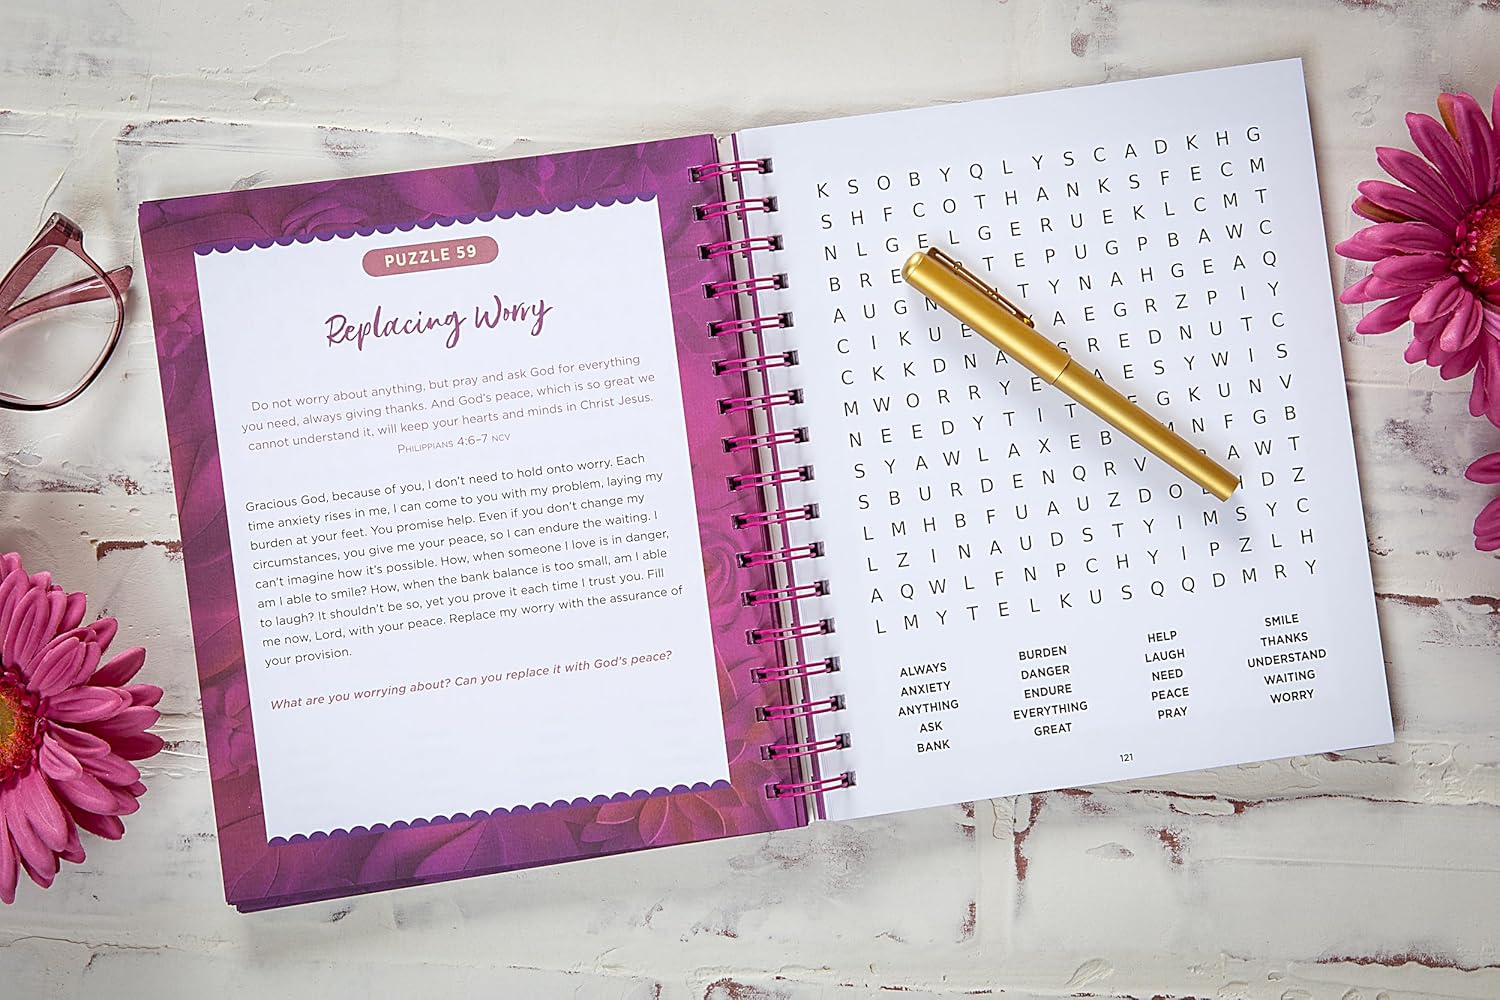 PUZZLE 59
Replacing Worry
Do not worry about anything, but pray and ask God for everything
you need, always giving thanks. And God's peace, which is so great we
cannot understand it, will keep your hearts and minds in Christ Jesus.
PHILIPPIANS 4:6–7 NCV
Gracious God, because of you, I don't need to hold onto worry. Each
time anxiety rises in me, I can come to you with my problem, laying my
burden at your feet. You promise help. Even if you don't change my
circumstances, you give me your peace, so I can endure the waiting. I
can't imagine how it's possible. How, when someone I love is in danger,
am I able to smile? How, when the bank balance is too small, am I able
to laugh? It shouldn't be so, yet you prove it each time I trust you. Fill
me now, Lord, with your peace. Replace my worry with the assurance of
your provision.
What are you worrying about? Can you replace it with God's peace?
K S O B Y Q L Y S C A D K H G
S H F C O T H A N K S F E C M
N L G E L G E R U E K L C M T
B R E T E P U G P B A W C
A U G N T Y N A H G E A Q
C I K U E A E G R Z P I Y
C K K D N A S R E D N U T C
M W O R R Y E A E S Y W I S
N E E D Y T I T G K U N V
S Y A W L A X E B M N F G B
S B U R D E N Q R V A W T
L M H B F U A U Z D O H D Z
L Z I N A U D S T Y I M S Y C
A Q W L F N P C H Y I P Z L H
L M Y T E L K U S Q Q D M R Y
ALWAYS
ANXIETY
ANYTHING
ASK
BANK
BURDEN
DANGER
ENDURE
EVERYTHING
GREAT
HELP
LAUGH
NEED
PEACE
PRAY
SMILE
THANKS
UNDERSTAND
WAITING
WORRY
121